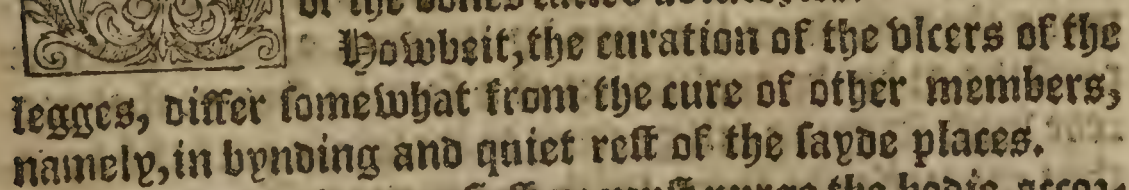 of the bones
Howbeit, the curation of the vlcers of the
legges, differ somewhat from the cure of other members,
namely, in bynding and quiet rest of the sayde places.
purge the bodie